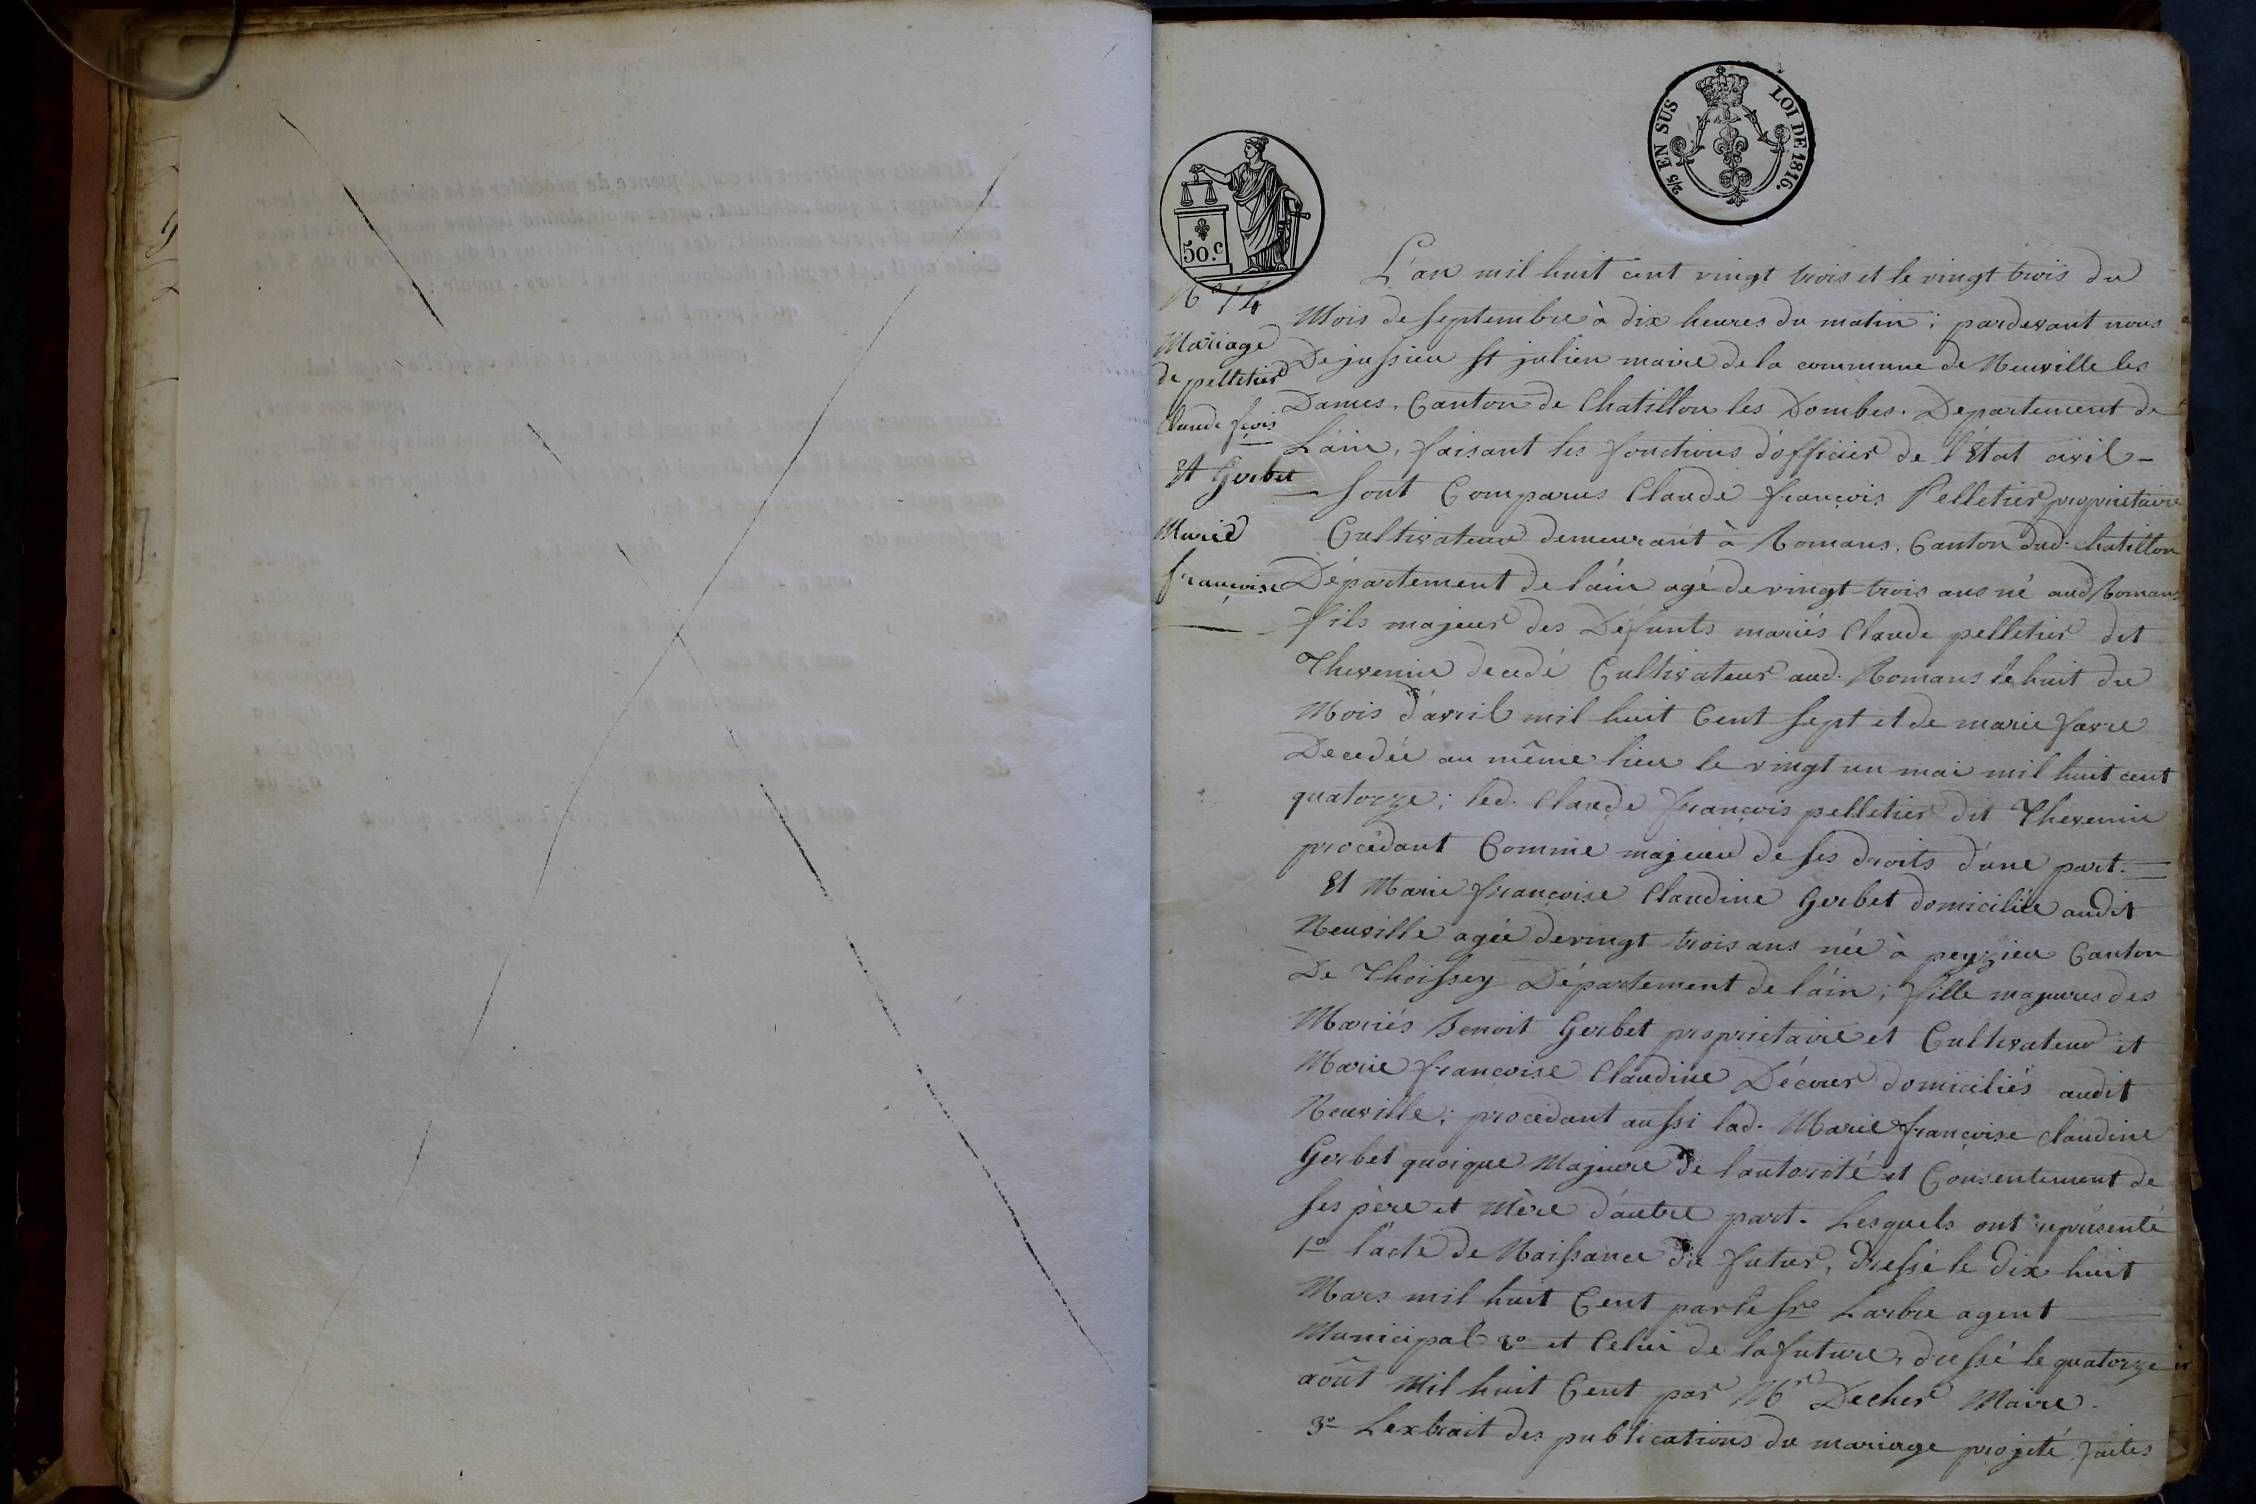 2/5 EN SUS LOI DE 1816.
50.c
N° 14
Mariage
de pelletier
Claude fçois
Et Gerbet
Marie
françoise
L'an mil huit cent vingt trois et le vingt trois du
Mois de septembre à dix heures du matin; pardevant nous
Dejussieu St julien maire de la commune de Neuville les
Dames, Canton de Chatillon les Dombes. Departement de
L'ain, faisant les fonctions d'officier de l'Etat civil -
Sont Comparus Claude françois Pelletier proprietaire
Cultivateur demeurant à Romans, Canton dud. Chatillon
Département de l'ain agé de vingt trois ans né aud Romans
fils majeur des Défunts mariés Claude pelletier dit
Thevenin decedé Cultivateur aud. Romans le huit du
Mois d'avril mil huit Cent sept et de marie favre
Decedée au même lieu le vingt un mai mil huit cent
quatorze; led. Claude françois pelletier dit Thevenin
procédant Comme majeur de ses droits d'une part.
Et Marie françoise Claudine Gerbet domiciliée audit
Neuville agée de vingt trois ans née à peyzieu Canton
De Thoissey Département de l'ain; fille majeures des
Mariés Benoit Gerbet proprietaire et Cultivateur et
Marie françoise Claudine Décour domiciliés audit
Neuville; procédant aussi lad. Marie françoise Claudine
Gerbet quoique Majeure de l'autorité et Consentement de
ses père et Mère d'autre part. Lesquels ont représenté
1° l'acte de Naissance du futur, dressé le dix huit
Mars mil huit Cent par le Sr Larbre agent
Municipal 2° et Celui de la future, dressé le quatorze
août Mil huit Cent par Mr Decher Maire.
3° L'extrait des publications du mariage projeté, faites